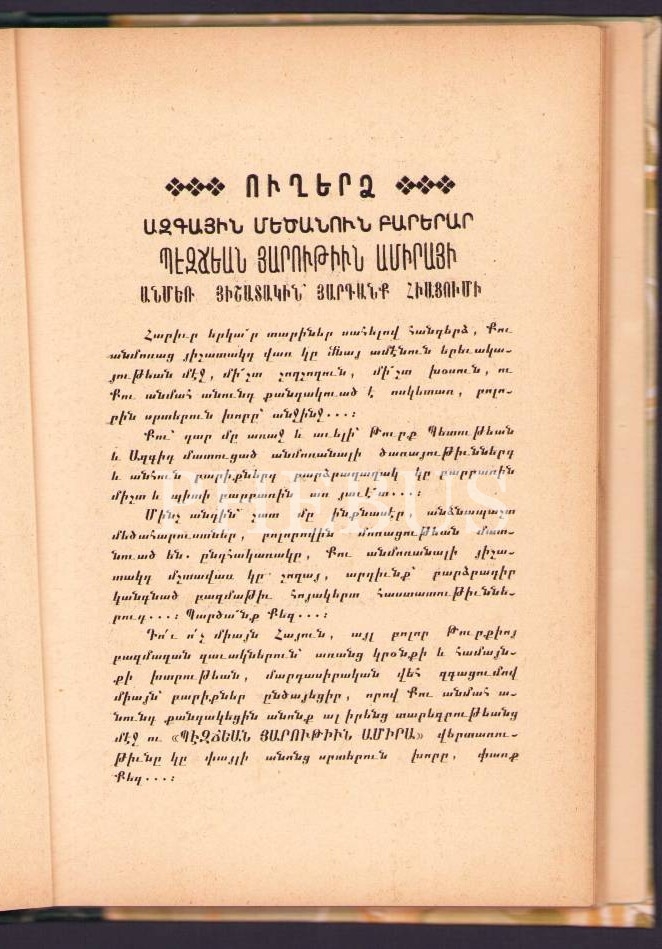 ՈՒՂԵՐՁ
ԱԶԳԱՅԻՆ ՄԵԾԱՆՈՒՆ ԲԱՐԵՐԱՐ
ՊԷԶՃԵԱՆ ՅԱՐՈՒԹԻՒՆ ԱՄԻՐԱՅԻ
ԱՆՄԵՌ ՅԻՇԱՏԱԿԻՆ՝ ՅԱՐԳԱՆՔ ՀԻԱՑՈՒՄԻ
Հարիւր երկա՜ր տարիներ սահելով հանդերձ, Քու
անմոռաց յիշատակդ վառ կը մնայ ամէնուն երեւակա-
յութեան մէջ, մի՛շտ շողշողուն, մի՛շտ խօսուն, ու
Քու անմահ անունդ քանդակուած է ոսկետառ, բոլո-
րին սրտերուն խորը՝ անջինջ...։
Քու՝ դար մը առաջ և աւելի՝ Թուրք Պետութեան
և Ազգիդ մատուցած անմոռանալի ծառայութիւններդ
և անհուն բարիքներդ բարձրաղաղակ կը բարբառին
միշտ և պիտի բարբառին առ յաւէ՜տ...։
Մինչ անդին՝ շատ մը ինքնասէր անձնապաշտ
մեծահարուստներ, բոլորովին մոռացութեան մատ-
նուած են. ընդհակառակը, Քու անմոռանալի յիշա-
տակդ մշտավառ կը շողայ, արդիւնք՝ բարձրադիր
կանգնած բազմաթիւ հոյակերտ հաստատութիւննե-
րուդ...։ Պարծա՜նք Քեզ...։
Դո՛ւ ո՛չ միայն Հայուն, այլ բոլոր Թուրքիոյ
բազմազան զաւակներուն՝ առանց կրօնքի և համայն-
քի խտրութեան, մարդասիրական վեհ զգացումով
միայն՝ բարիքներ ընծայեցիր, որով Քու անմահ ա-
նունդ քանդակեցին անոնք ալ իրենց տարեգրութեանց
մէջ ու «ՊԷԶՃԵԱՆ ՅԱՐՈՒԹԻՒՆ ԱՄԻՐԱ» վերտառու-
թիւնը կը փայլի անոնց սրտերուն խորը, փառք
Քեզ...։
PHEBUS